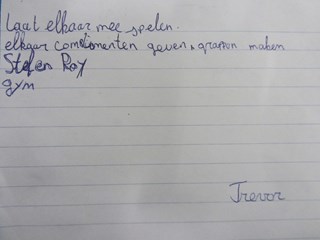 Laat elkaar mee spelen.
elkaar complimenten geven, grappen maken
Stefen Roy
gym
Trevor